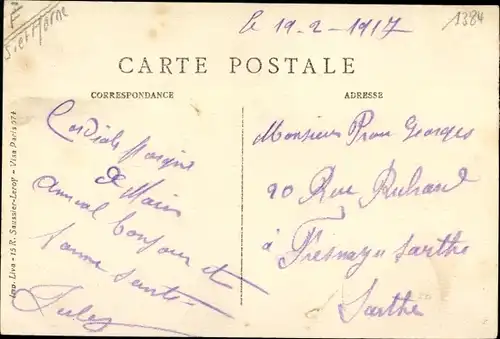 S et Marne
le 19-2-1917
1384
CARTE POSTALE
CORRESPONDANCE
ADRESSE
Cordiale
de Marie
amical bonjour et
bonne santé
Jules
Monsieur Pron Georges
20 Rue
à Fresnay s Sarthe
Sarthe
Imp. Liva - 15 R. Saussier-Leroy - Visa Paris 974